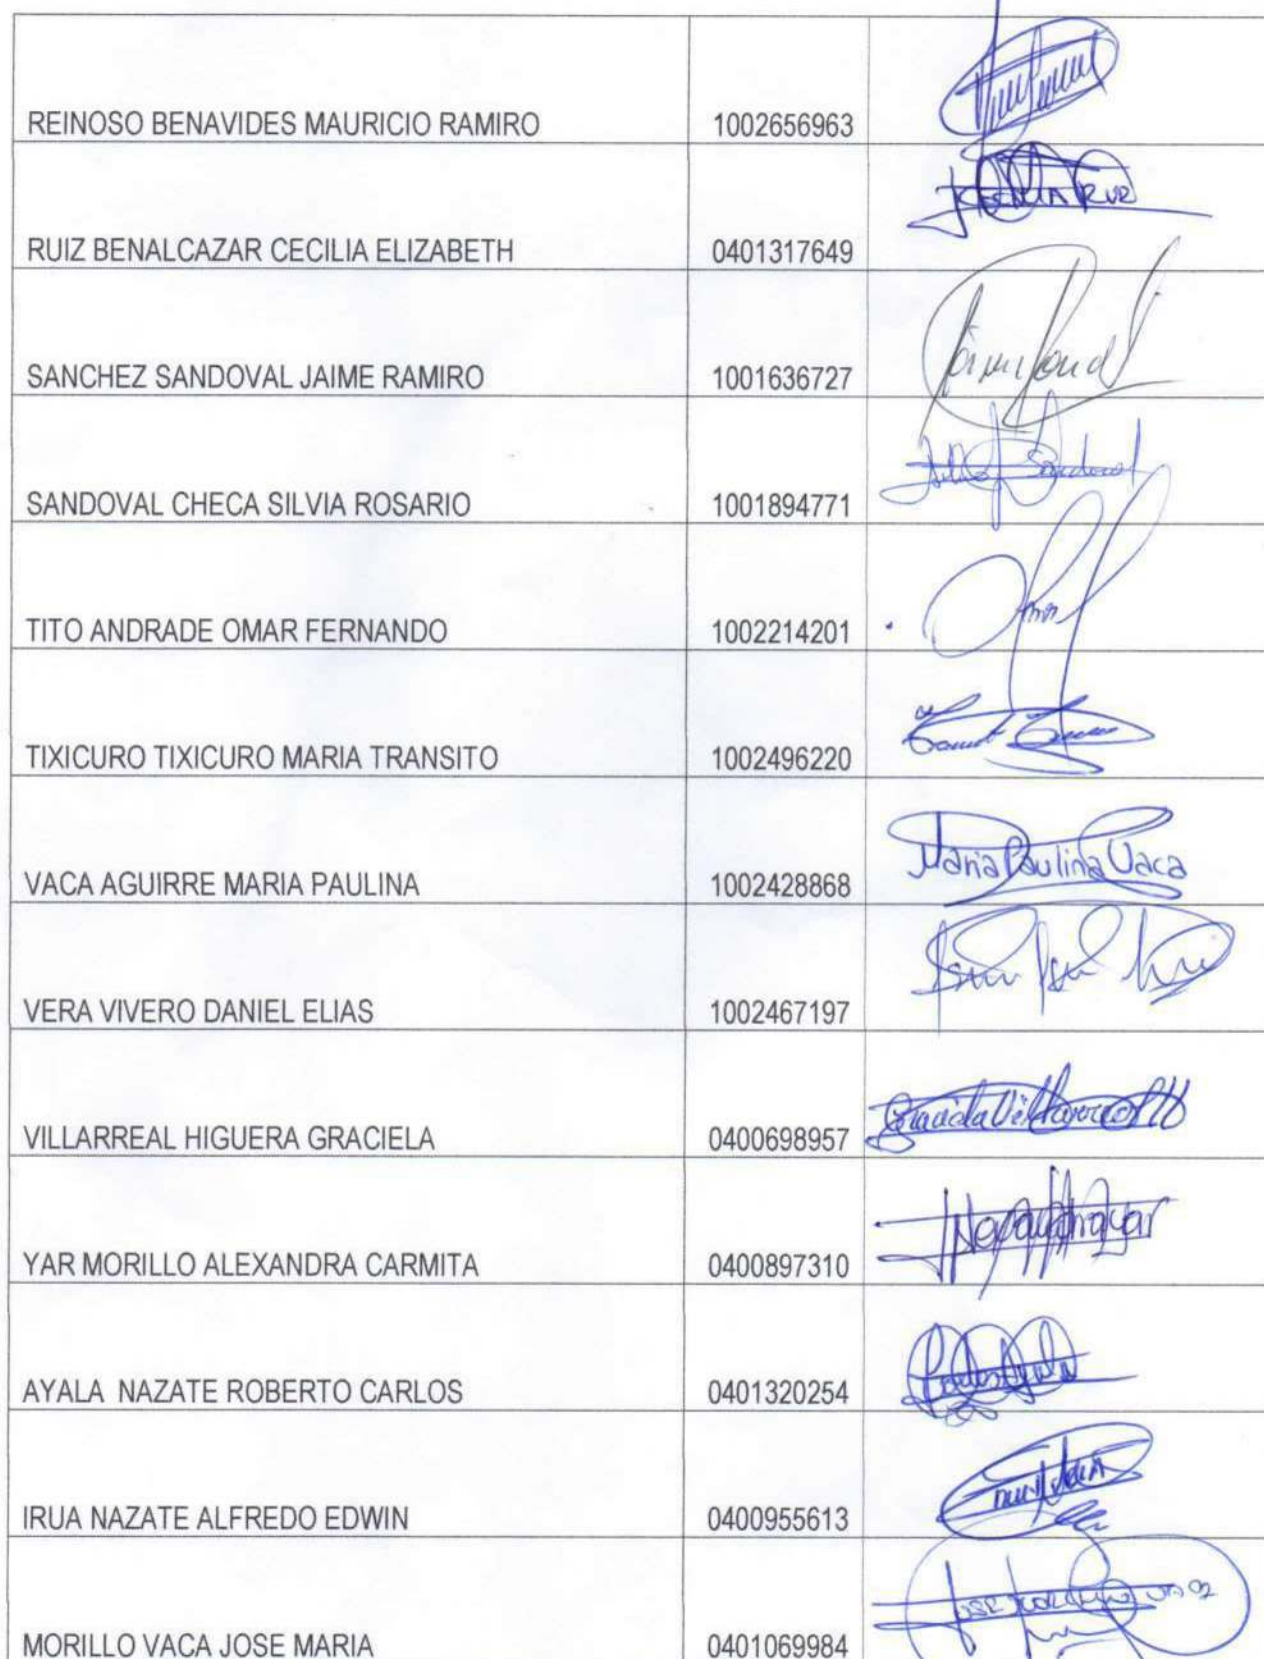 REINOSO BENAVIDES MAURICIO RAMIRO 1002656963
RUIZ BENALCAZAR CECILIA ELIZABETH 0401317649
SANCHEZ SANDOVAL JAIME RAMIRO 1001636727
SANDOVAL CHECA SILVIA ROSARIO 1001894771 Sandoval
TITO ANDRADE OMAR FERNANDO 1002214201
TIXICURO TIXICURO MARIA TRANSITO 1002496220
VACA AGUIRRE MARIA PAULINA 1002428868 Maria Paulina Vaca
VERA VIVERO DANIEL ELIAS 1002467197
VILLARREAL HIGUERA GRACIELA 0400698957 Graciela Villarreal
YAR MORILLO ALEXANDRA CARMITA 0400897310
AYALA NAZATE ROBERTO CARLOS 0401320254
IRUA NAZATE ALFREDO EDWIN 0400955613
MORILLO VACA JOSE MARIA 0401069984